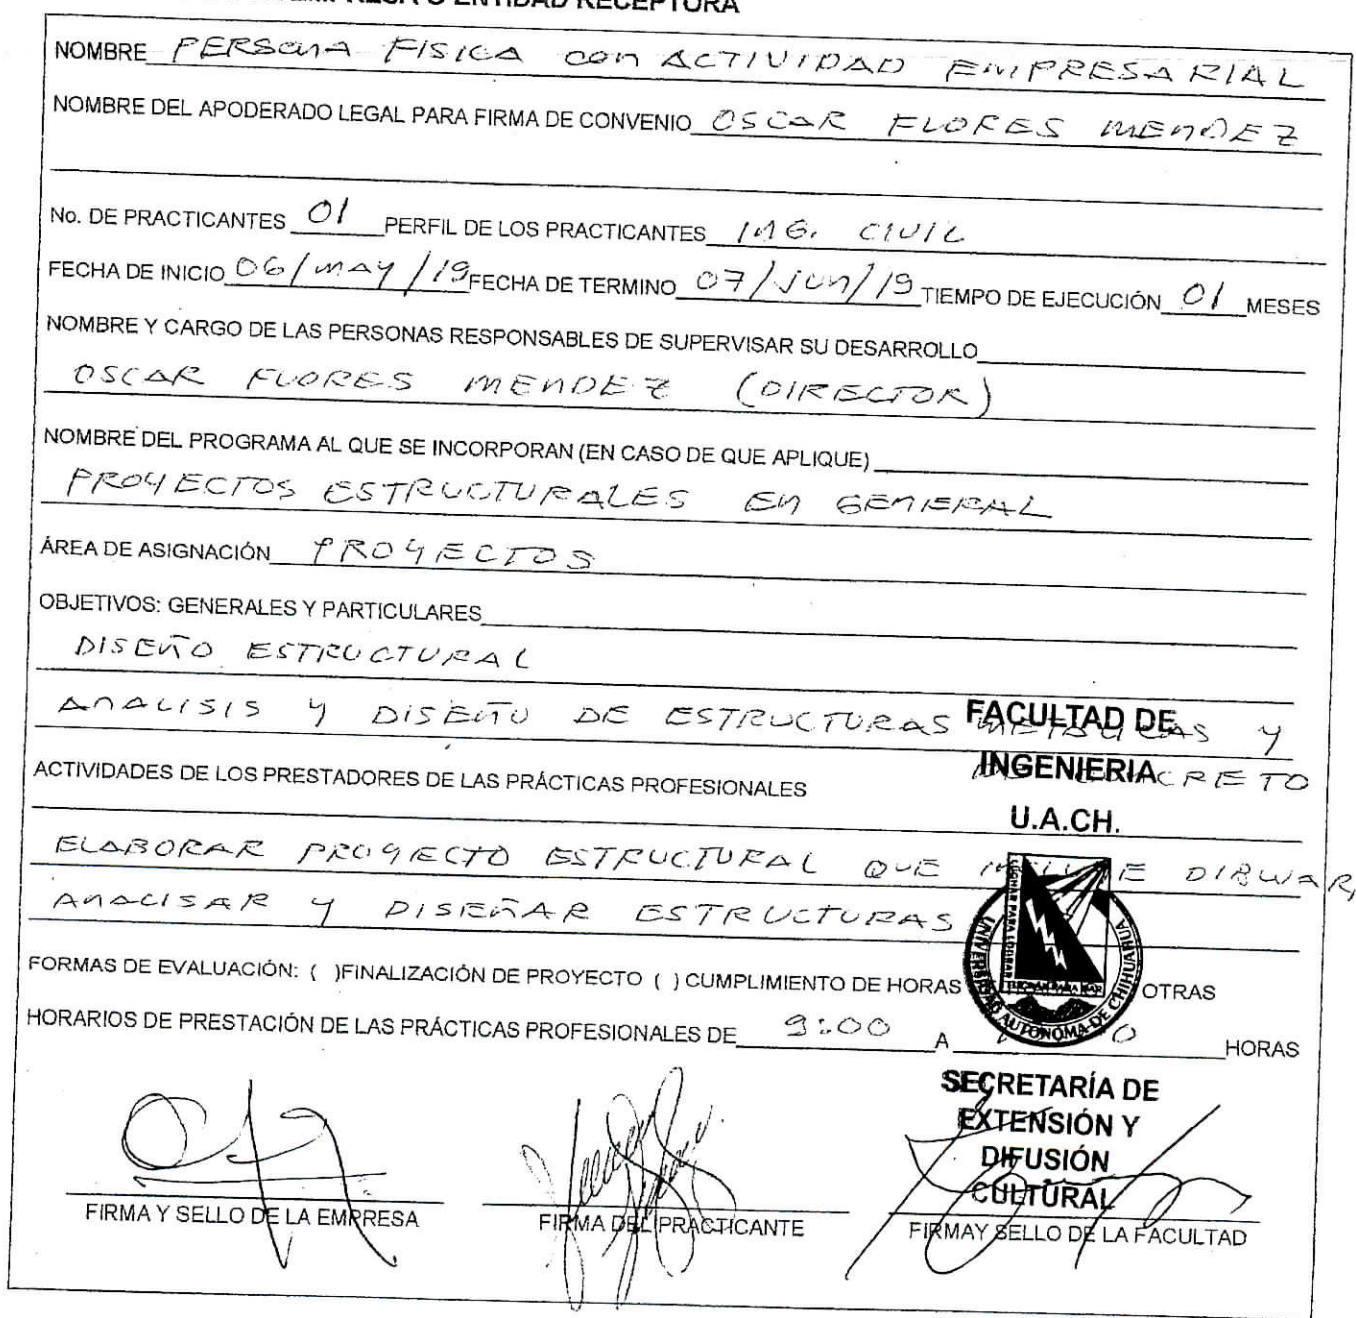 EMPRESA O ENTIDAD RECEPTORA
NOMBRE PERSONA FISICA con ACTIVIDAD EMPRESARIAL
NOMBRE DEL APODERADO LEGAL PARA FIRMA DE CONVENIO OSCAR FLORES MENDEZ
No. DE PRACTICANTES 01 PERFIL DE LOS PRACTICANTES ING. CIVIL
FECHA DE INICIO 06/MAY/19 FECHA DE TERMINO 07/JUN/19 TIEMPO DE EJECUCIÓN 01 MESES
NOMBRE Y CARGO DE LAS PERSONAS RESPONSABLES DE SUPERVISAR SU DESARROLLO
OSCAR FLORES MENDEZ (DIRECTOR)
NOMBRE DEL PROGRAMA AL QUE SE INCORPORAN (EN CASO DE QUE APLIQUE)
PROYECTOS ESTRUCTURALES EN GENERAL
ÁREA DE ASIGNACIÓN PROYECTOS
OBJETIVOS: GENERALES Y PARTICULARES
DISEÑO ESTRUCTURAL
ANALISIS Y DISEÑO DE ESTRUCTURAS METALICAS Y
CONCRETO
ACTIVIDADES DE LOS PRESTADORES DE LAS PRÁCTICAS PROFESIONALES
ELABORAR PROYECTO ESTRUCTURAL QUE INCLUYE DIBUJAR,
ANALISAR Y DISEÑAR ESTRUCTURAS
FORMAS DE EVALUACIÓN: ( )FINALIZACIÓN DE PROYECTO ( ) CUMPLIMIENTO DE HORAS OTRAS
HORARIOS DE PRESTACIÓN DE LAS PRÁCTICAS PROFESIONALES DE 9:00 A HORAS
FACULTAD DE
INGENIERIA
U.A.CH.
UNIVERSIDAD AUTONOMA DE CHIHUAHUA
LUCHAR PARA LOGRAR
LOGRAR PARA DAR
SECRETARÍA DE
EXTENSIÓN Y
DIFUSIÓN
CULTURAL
FIRMA Y SELLO DE LA EMPRESA
FIRMA DEL PRACTICANTE
FIRMAY SELLO DE LA FACULTAD